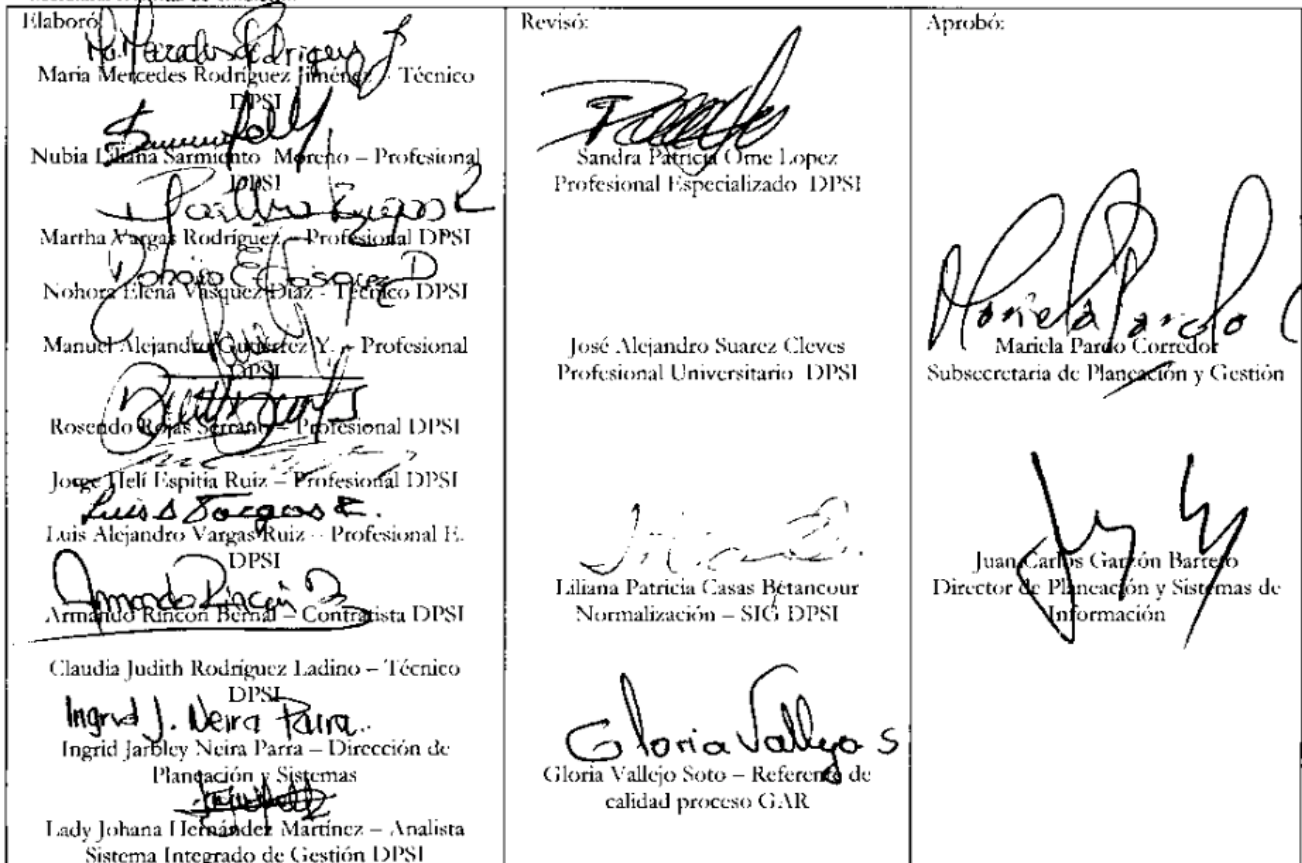 Elaboró
Ma. Mercedes Rodríguez J
María Mercedes Rodríguez Jiménez - Técnico
DPSI
Nubia Liliana Sarmiento Moreno – Profesional
DPSI
Martha Vargas R
Martha Vargas Rodríguez – Profesional DPSI
Nohora E Vasquez D
Nohora Elena Vásquez Díaz - Técnico DPSI
Manuel Alejandro Gutiérrez Y. – Profesional
DPSI
Rosendo Rojas Serrano – Profesional DPSI
Jorge Helí Espitia Ruiz – Profesional DPSI
Luis A Vargas R.
Luis Alejandro Vargas Ruiz – Profesional E.
DPSI
Armando Rincón B
Armando Rincón Bernal – Contratista DPSI
Claudia Judith Rodríguez Ladino – Técnico
DPSI
Ingrid J. Neira Parra.
Ingrid Jarbley Neira Parra – Dirección de
Planeación y Sistemas
Lady Johana Hernández Martínez – Analista
Sistema Integrado de Gestión DPSI
Revisó:
Sandra Patricia Ome Lopez
Profesional Especializado DPSI
José Alejandro Suarez Cleves
Profesional Universitario DPSI
Liliana Patricia Casas Betancour
Normalización – SIG DPSI
Gloria Vallejo S
Gloria Vallejo Soto – Referente de
calidad proceso GAR
Aprobó:
Mariela Pardo C
Mariela Pardo Corredor
Subsecretaria de Planeación y Gestión
Juan Carlos Garzón Barreto
Director de Planeación y Sistemas de
Información